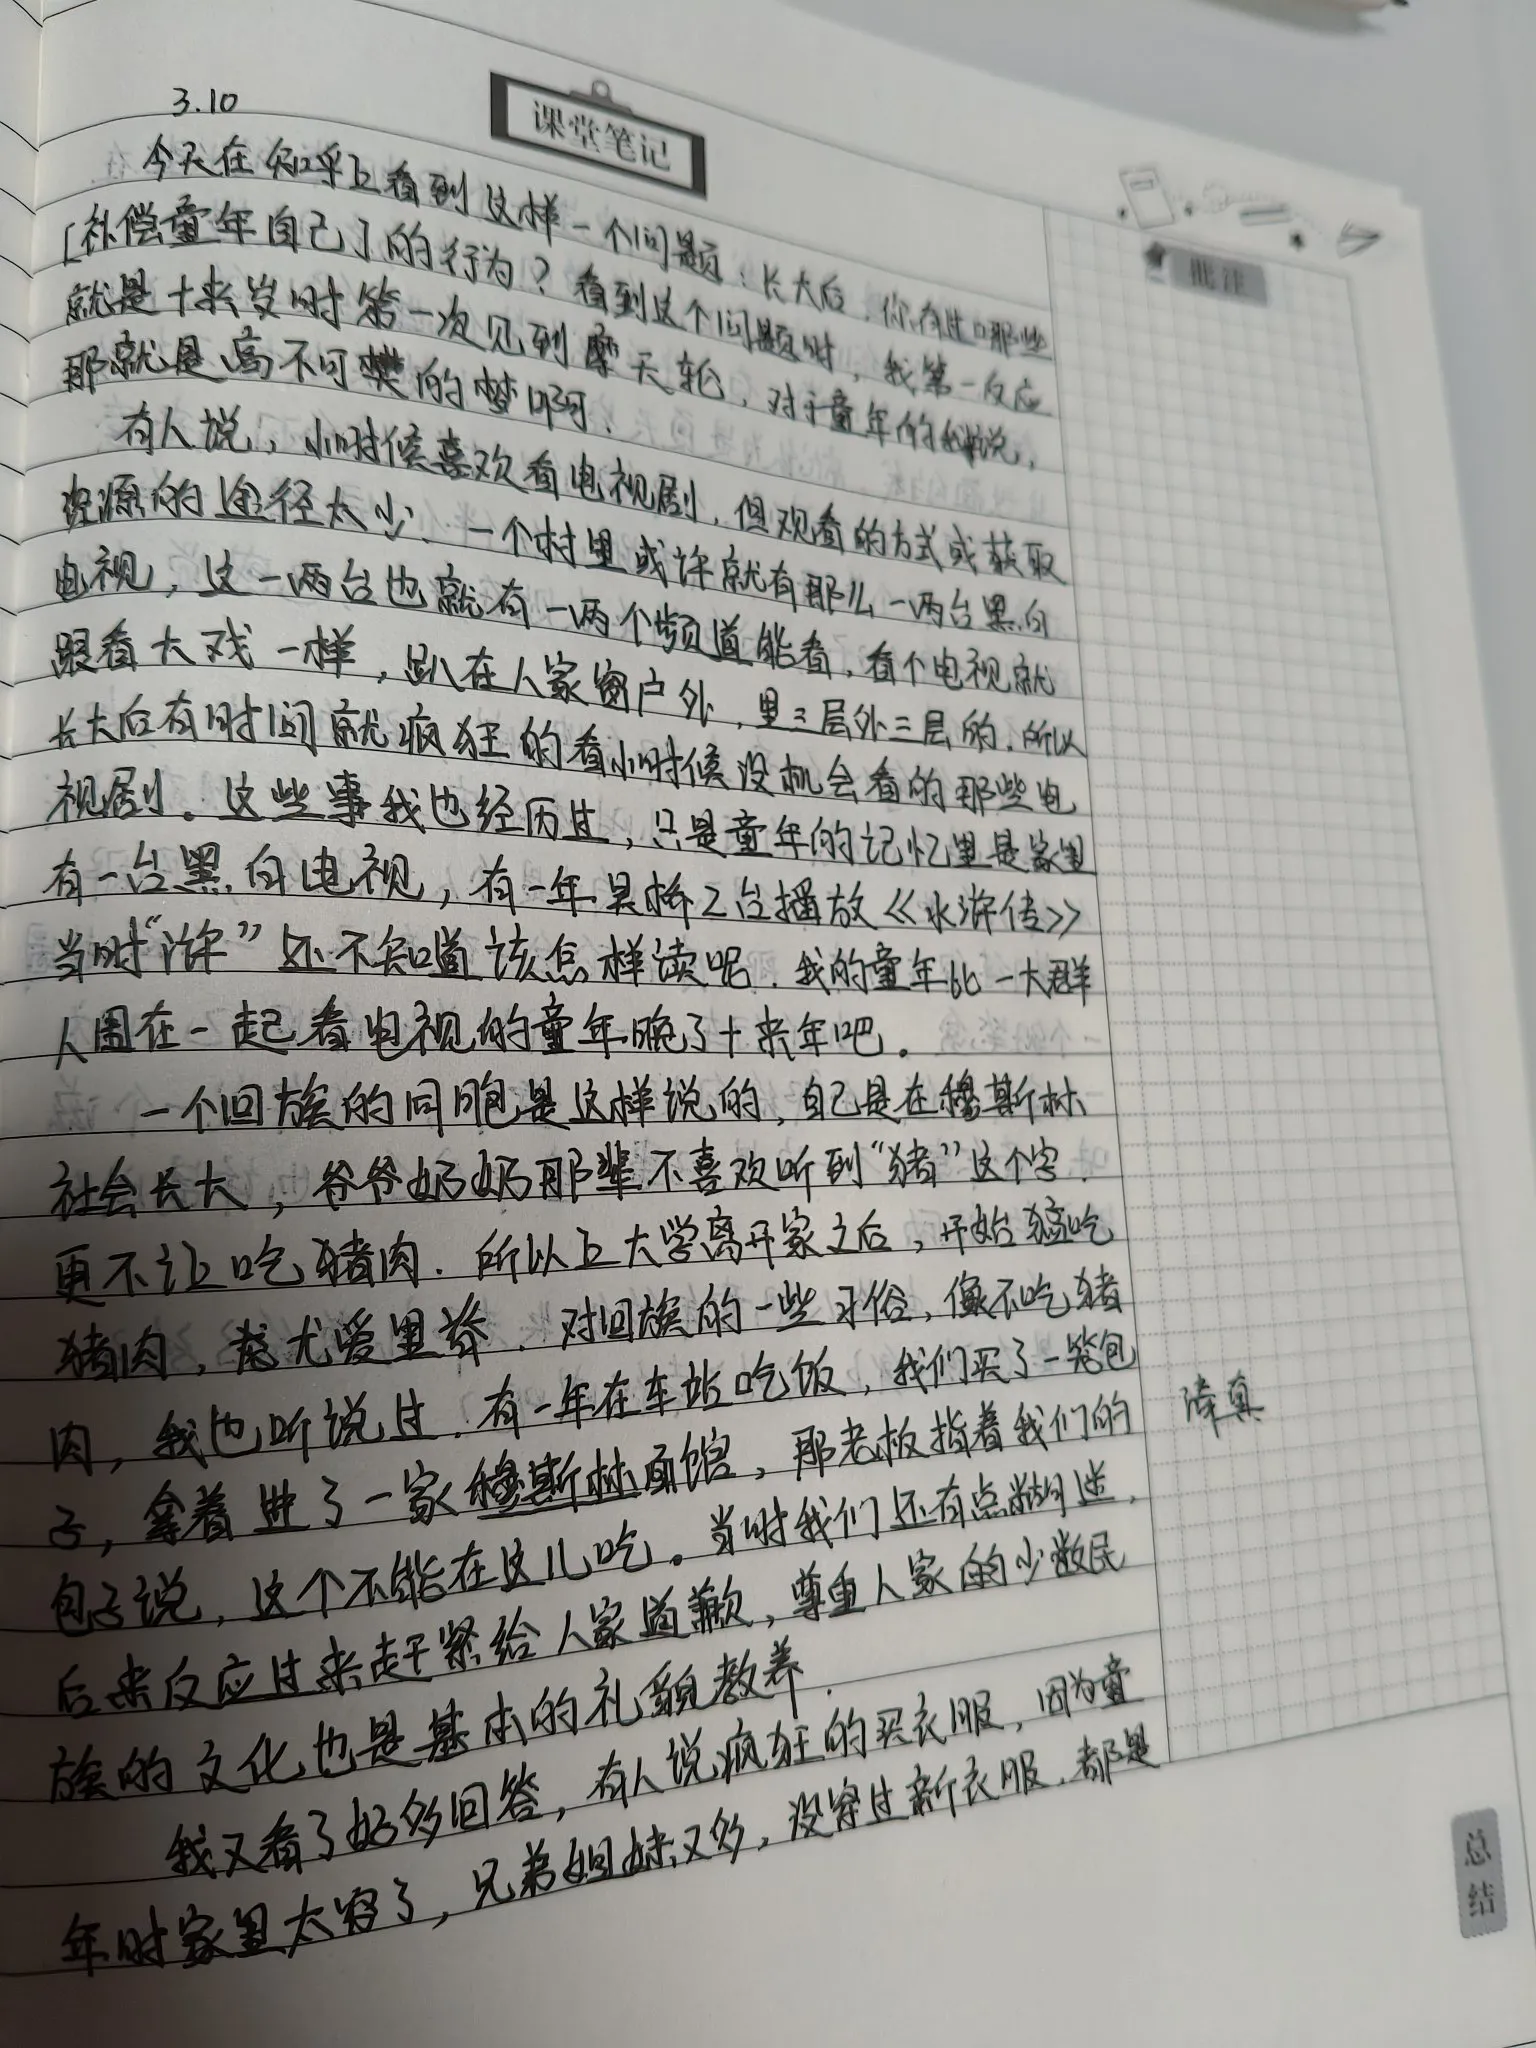 3.10
课堂笔记
今天在知乎上看到这样一个问题：长大后，你有过哪些
[补偿童年自己]的行为？看到这个问题时，我第一反应
就是十来岁时第一次见到摩天轮，对于童年的我说，
那就是高不可攀的梦啊.
有人说，小时候喜欢看电视剧，但观看的方式或获取
资源的途径太少、一个村里或许就有那么一两台黑白
电视，这一两台也就有一两个频道能看，看个电视就
跟看大戏一样，趴在人家窗户外，里三层外三层的.所以
长大后有时间就疯狂的看小时候没机会看的那些电
视剧。这些事我也经历过，只是童年的记忆里是家里
有一台黑白电视，有一年吴桥2台播放《水浒传》
当时“浒”还不知道该怎样读呢.我的童年比一大群
人围在一起看电视的童年晚了十来年吧.
一个回族的同胞是这样说的，自己是在穆斯林
社会长大，爷爷奶奶那辈不喜欢听到“猪”这个字.
更不让吃猪肉.所以上大学离开家之后，开始猛吃
猪肉，尤爱里脊.对回族的一些习俗，像不吃猪
肉，我也听说过.有一年在车站吃饭，我们买了一笼包
子，拿着进了一家穆斯林面馆，那老板指着我们的
包子说，这个不能在这儿吃。当时我们还有点糊迷，
后来反应过来赶紧给人家道歉，尊重人家的少数民
族的文化也是基本的礼貌教养.
我又看了好多回答，有人说疯狂的买衣服，因为童
年时家里太穷了，兄弟姐妹又多，没穿过新衣服.都是
批注
清真
总结